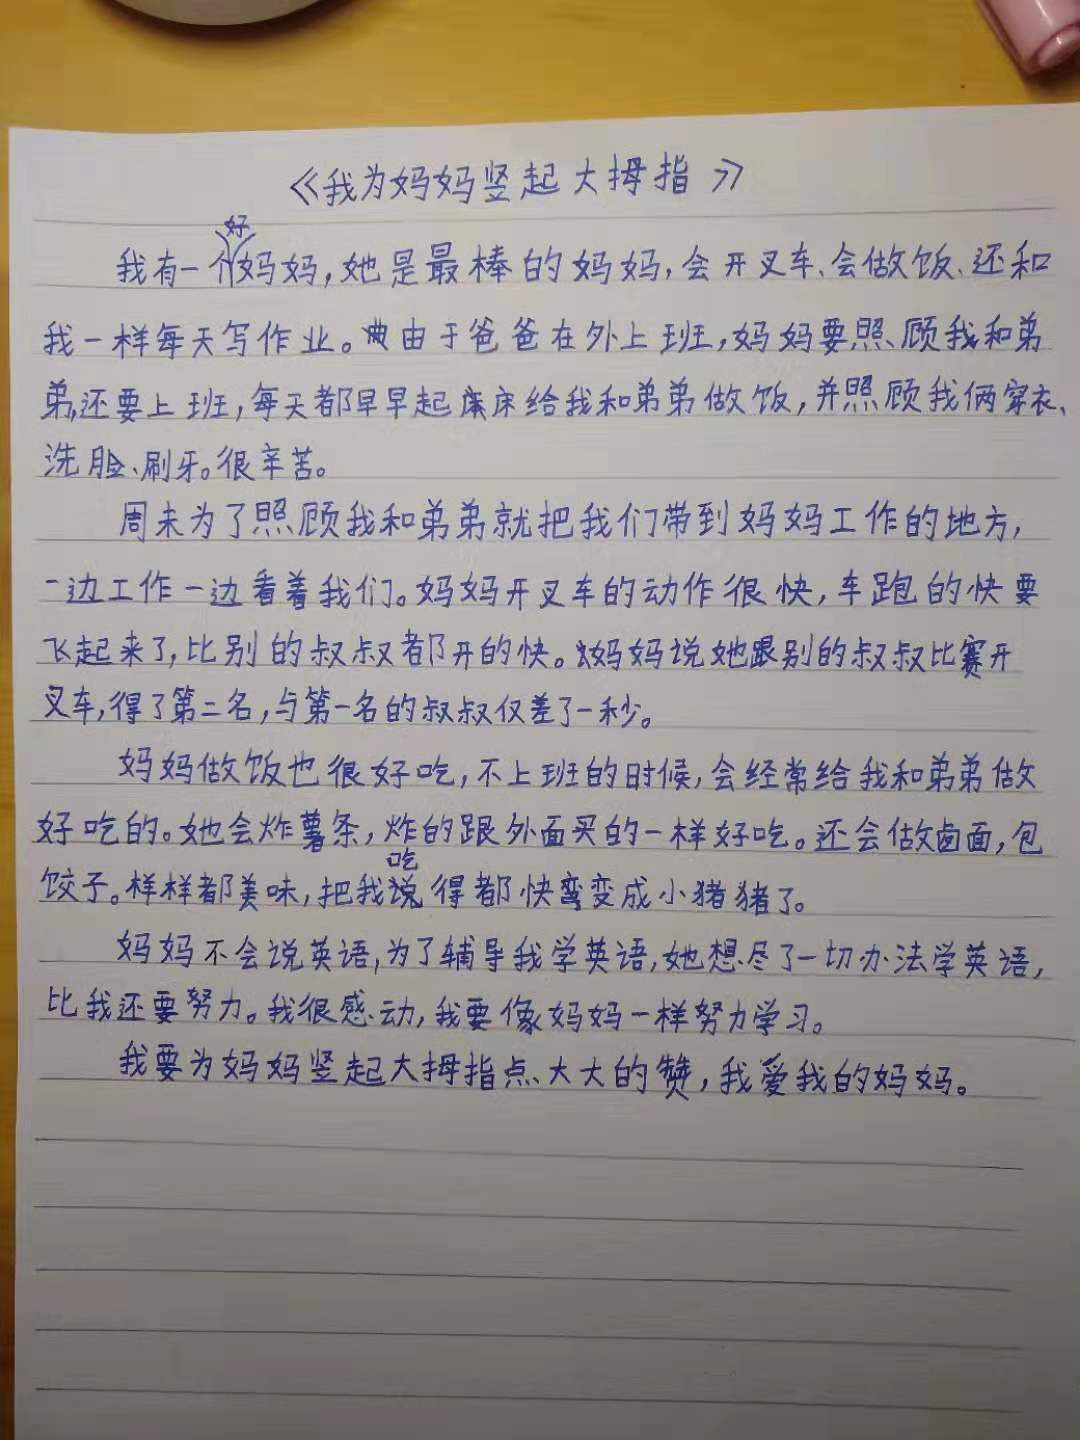 《我为妈妈竖起大拇指》
我有一个好妈妈，她是最棒的妈妈，会开叉车、会做饭、还和
我一样每天写作业。由于爸爸在外上班，妈妈要照顾我和弟
弟，还要上班，每天都早早起床给我和弟弟做饭，并照顾我俩穿衣、
洗脸、刷牙。很辛苦。
周末为了照顾我和弟弟就把我们带到妈妈工作的地方，
一边工作一边看着我们。妈妈开叉车的动作很快，车跑的快要
飞起来了，比别的叔叔都开的快。妈妈说她跟别的叔叔比赛开
叉车，得了第二名，与第一名的叔叔仅差了一秒。
妈妈做饭也很好吃，不上班的时候，会经常给我和弟弟做
好吃的。她会炸薯条，炸的跟外面买的一样好吃。还会做卤面，包
饺子。样样都美味，把我吃得都快变成小猪猪了。
妈妈不会说英语，为了辅导我学英语，她想尽了一切办法学英语，
比我还要努力。我很感动，我要像妈妈一样努力学习。
我要为妈妈竖起大拇指点大大的赞，我爱我的妈妈。